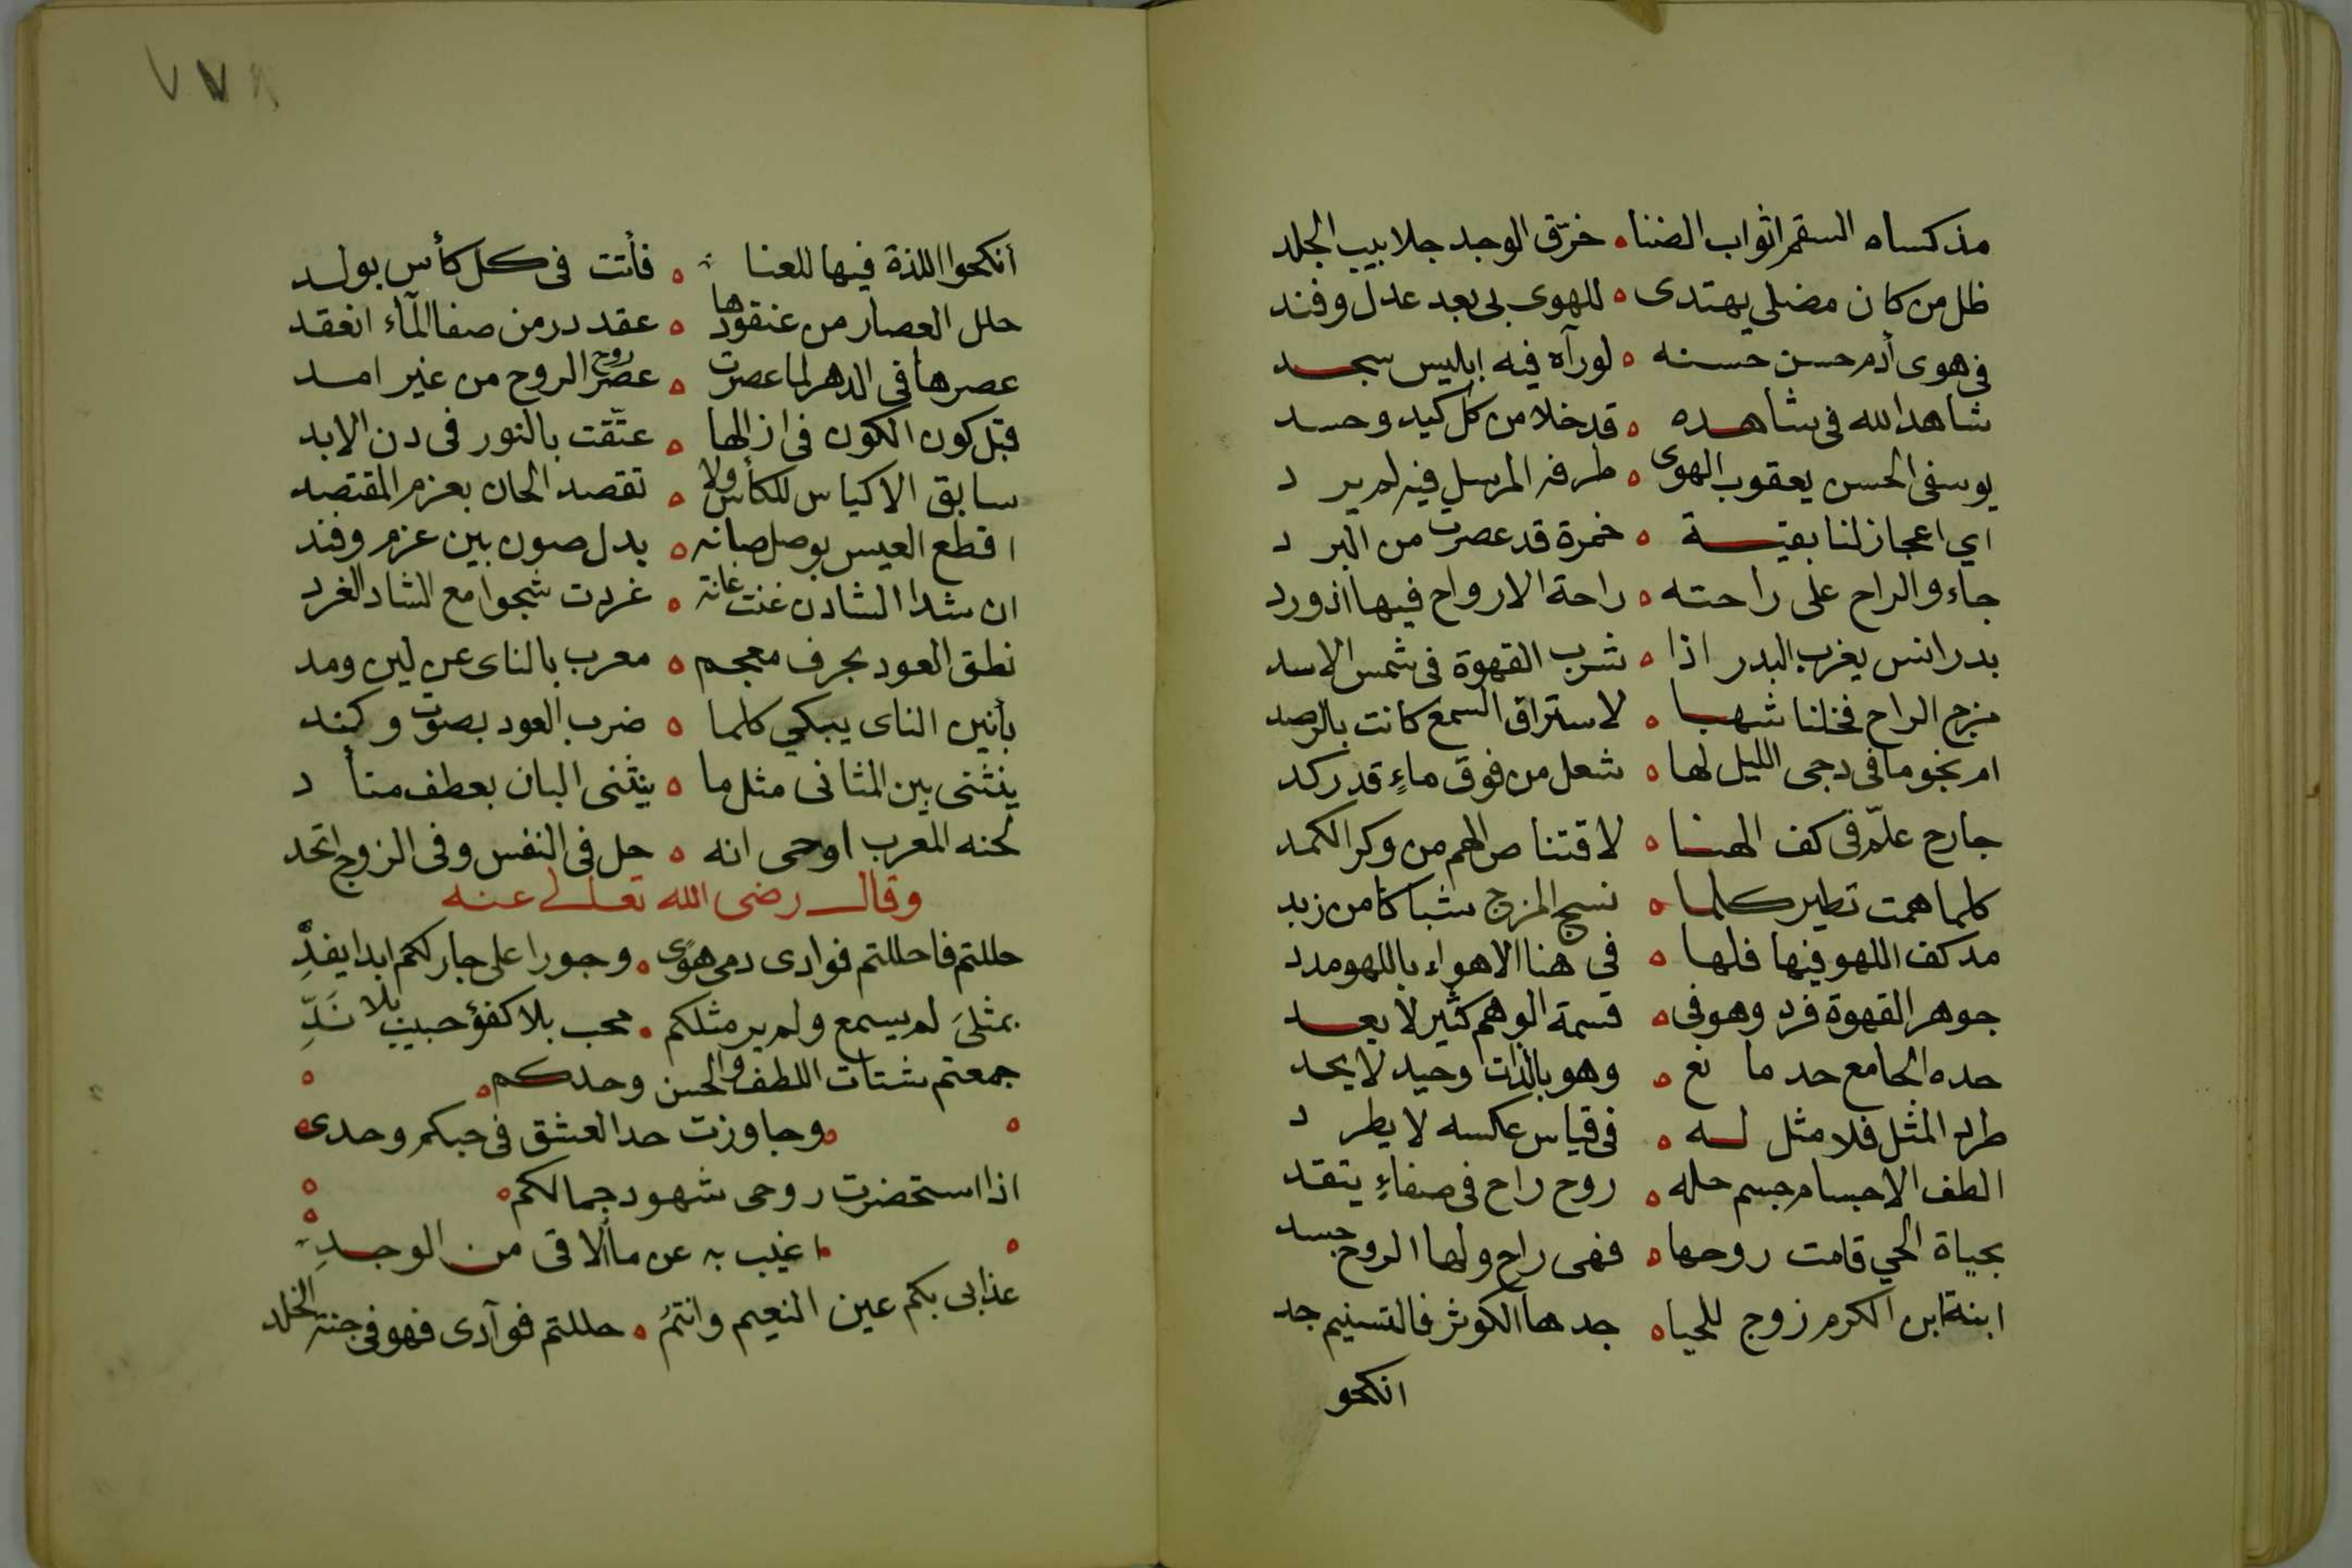 مذ كساه السقم اثواب الضنا ه خرّق الوجد جلابيب الجلد
ظل من كان مضلي يهتدى ه للهوى بى بعد عذل وفند
فى هوى أدم حسن حسنه ه لورآه فيه ابليس سجد
شاهد الله فى شاهده ه قد خلا من كل كيد وحسد
يوسفى الحسن يعقوب الهوى ه طرفه المرسل فيه لم يرد
اي اعجاز لنا بقيسة ه خمرة قد عصرت من البرد
جاء والراح على راحته ه راحة الارواح فيها اذ ورد
بدر انس يغرب البدر اذا ه شرب القهوة فى شمس الاسد
مزج الراح فخلنا شهبا ه لاستراق السمع كانت بالرصد
ام نجوما فى دجى الليل لها ه شعل من فوق ماءٍ قد ركد
جارح علّم فى كف الهنا ه لاقتناص الهم من وكر الكمد
كلما همت تطير كلما ه نسج المزج شباكا من زبد
مد كف اللهو فيها فلها ه في هنا الاهواء باللهو مدد
جوهر القهوة فرد وهو فى ه قسمة الوهم كثير لا يعد
حده الجامع حد مانع ه وهو بالذات وحيد لا يحد
طرد المثل فلا مثل له ه فى قياس عكسه لا يطرد
الطف الاجسام جسم حله ه روح راح فى صفاءٍ يتقد
بحياة الحي قامت روحها ه فهى راح ولها الروح جسد
ابنة ابن الكرم زوج للحيا ه جدها الكوثر فالتسنيم جد
انكحو
٧٧٨
أنكحوا اللذة فيها للعنا ه فأتت فى كل كأس بولد
حلل العصار من عنقودها ه عقد در من صفا المآء انعقد
عصرها فى الدهر لما عصرت ه عصر الروح روح من غير امد
قبل كون الكون فى ازالها ه عتّقت بالنور فى دن الابد
سابق الاكياس للكأس ولا ه تقصد الحان بعزم المقتصد
اقطع العيس بوصل صانه ه بدل صون بين عزم وفند
ان شدا الشادن غنت غانة ه غردت شجوا مع الشاد الغرد
نطق العود بحرف معجم ه معرب بالناى عن لين ومد
بأنين الناى يبكي كلما ه ضرب العود بصوت وكند
ينثنى بين المثانى مثل ما ه ينثنى البان بعطف متأد
لحنه المعرب اوحى انه ه حل فى النفس وفى الزوج اتحد
وقال رضى الله تعالى عنه
حللتم فاحللتم فوادى دمى هوى ه وجورا على جار لكم ابدا يفدِّ
بمثلىَ لم يسمع ولم ير مثلكم ه محب بلا كفؤ حبيب بلا نَدِّ
جمعتم شتات اللطف والحسن وحدكم ه
وجاوزت حد العشق فى حبكم وحدى
اذا استحضرت روحى شهود جمالكم ه
اغيب به عن ما ألاقى من الوجدِ
عذابى بكم عين النعيم وانتمُ ه حللتم فوآدى فهو فى جنة الخلد